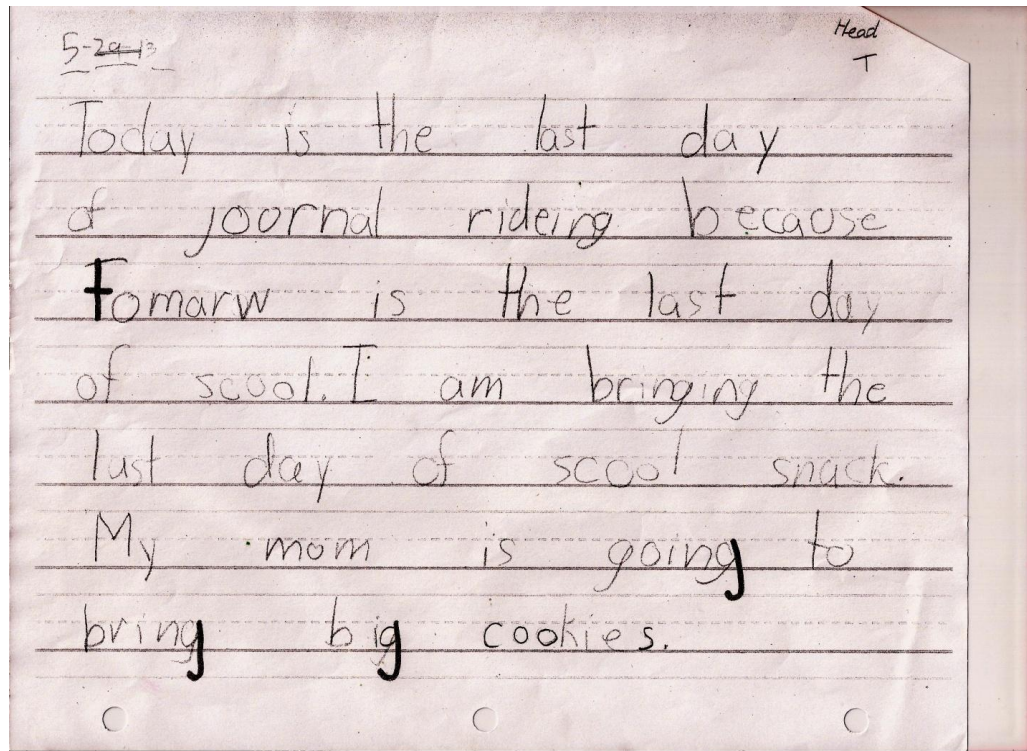 5-29-13
Head
T
Today is the last day
of joornal rideing because
Tomarw is the last day
of scool. I am bringing the
last day of scool snack.
My mom is going to
bring big cookies.